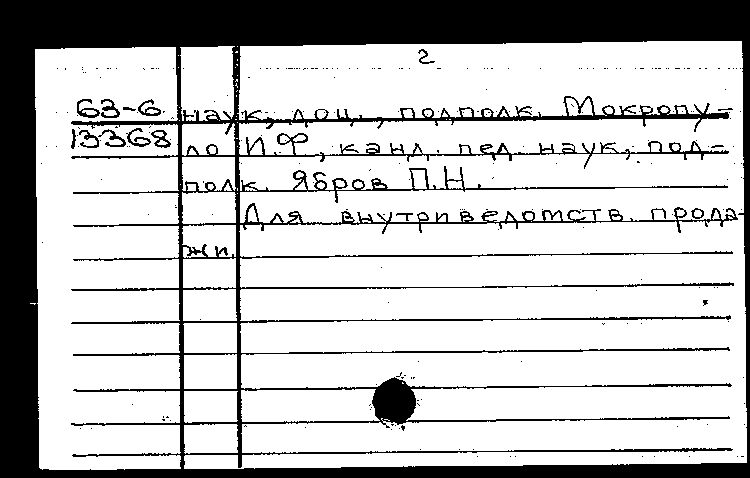 2
63-6 наук, доц., подполк. Мокропу-
13368 ло И.Ф., канд. пед. наук, под-
полк. Ябров П.Н.
Для внутриведомств. прода-
жи.